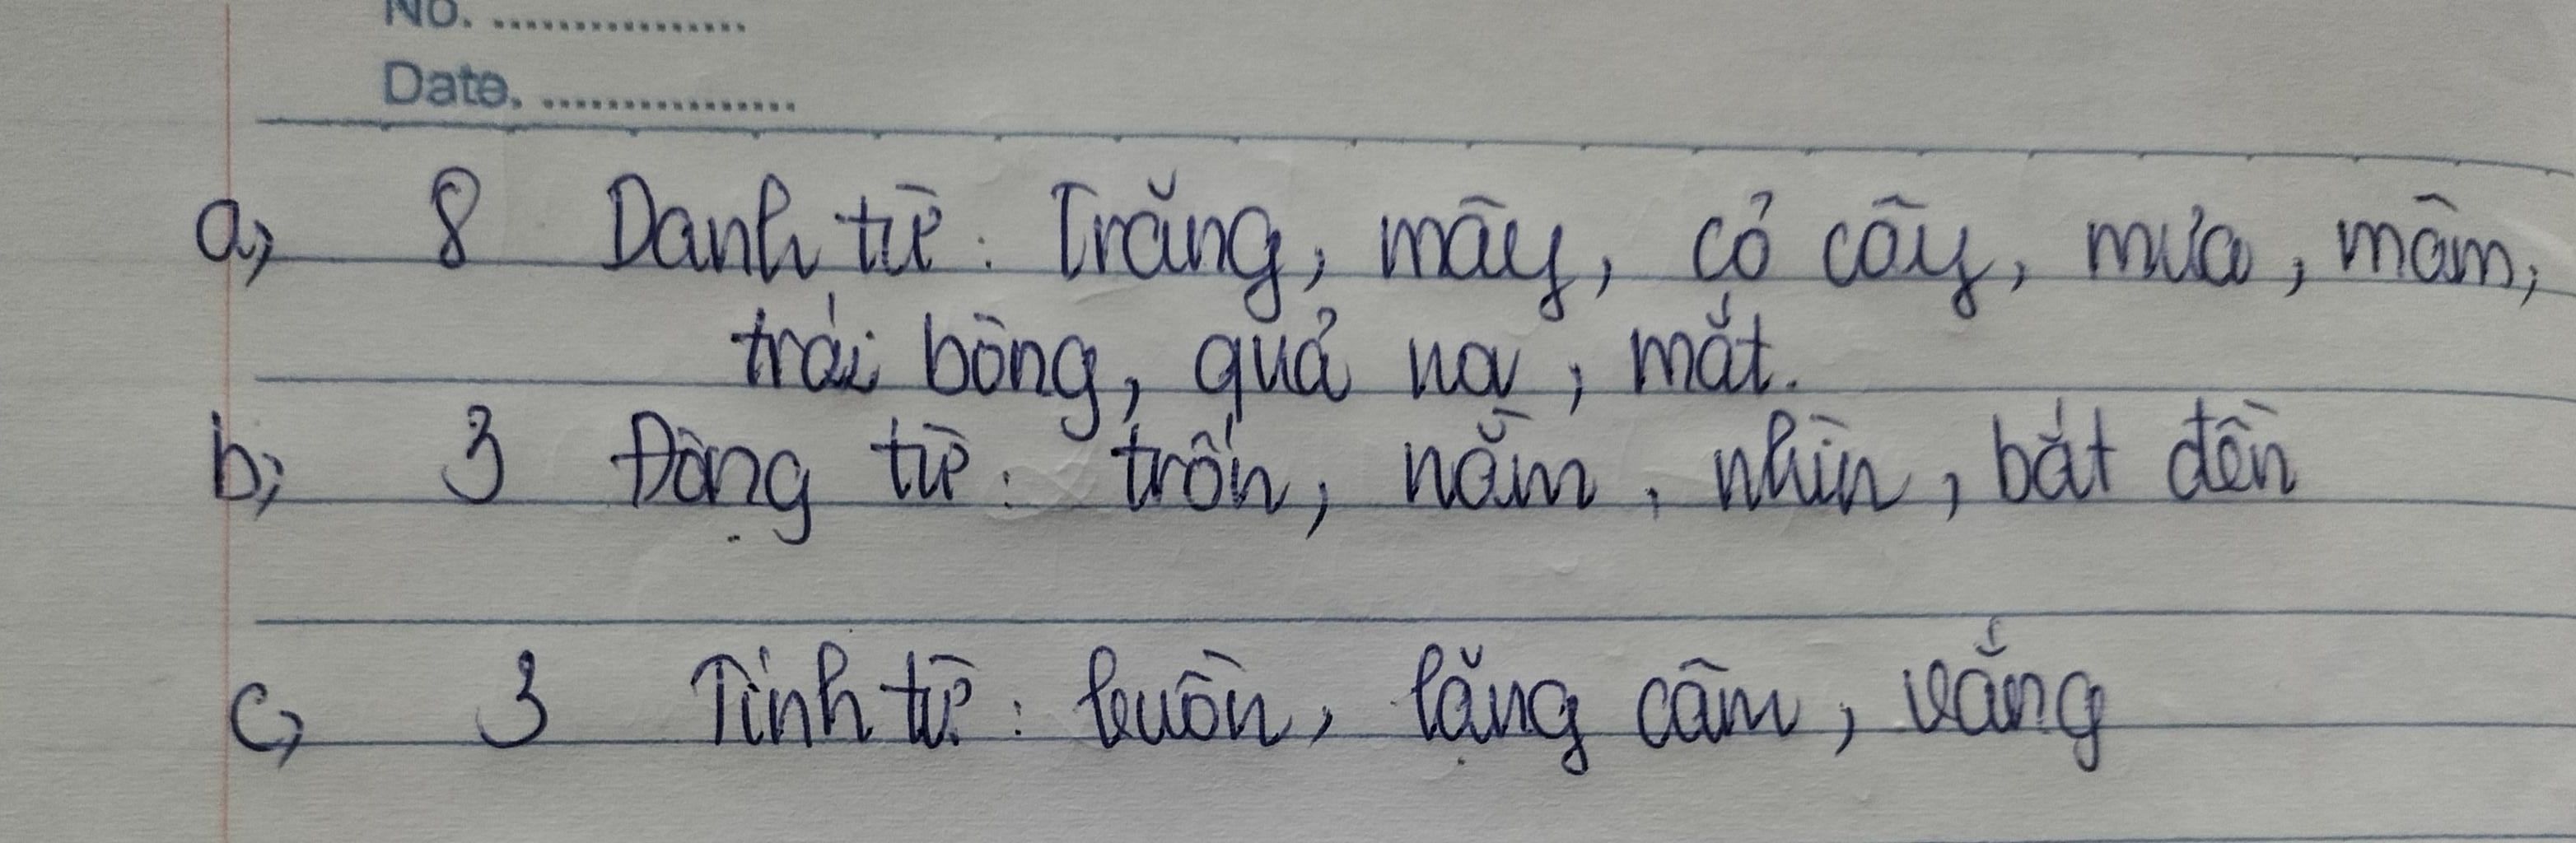 No. ................
Date. ................
a, 8 Danh từ: Trăng, mây, cỏ cây, mưa, mâm,
trái bóng, quả na, mắt.
b, 3 Động từ: trốn, nằm, nhìn, bắt đền
c, 3 Tính từ: buồn, lặng câm, vắng